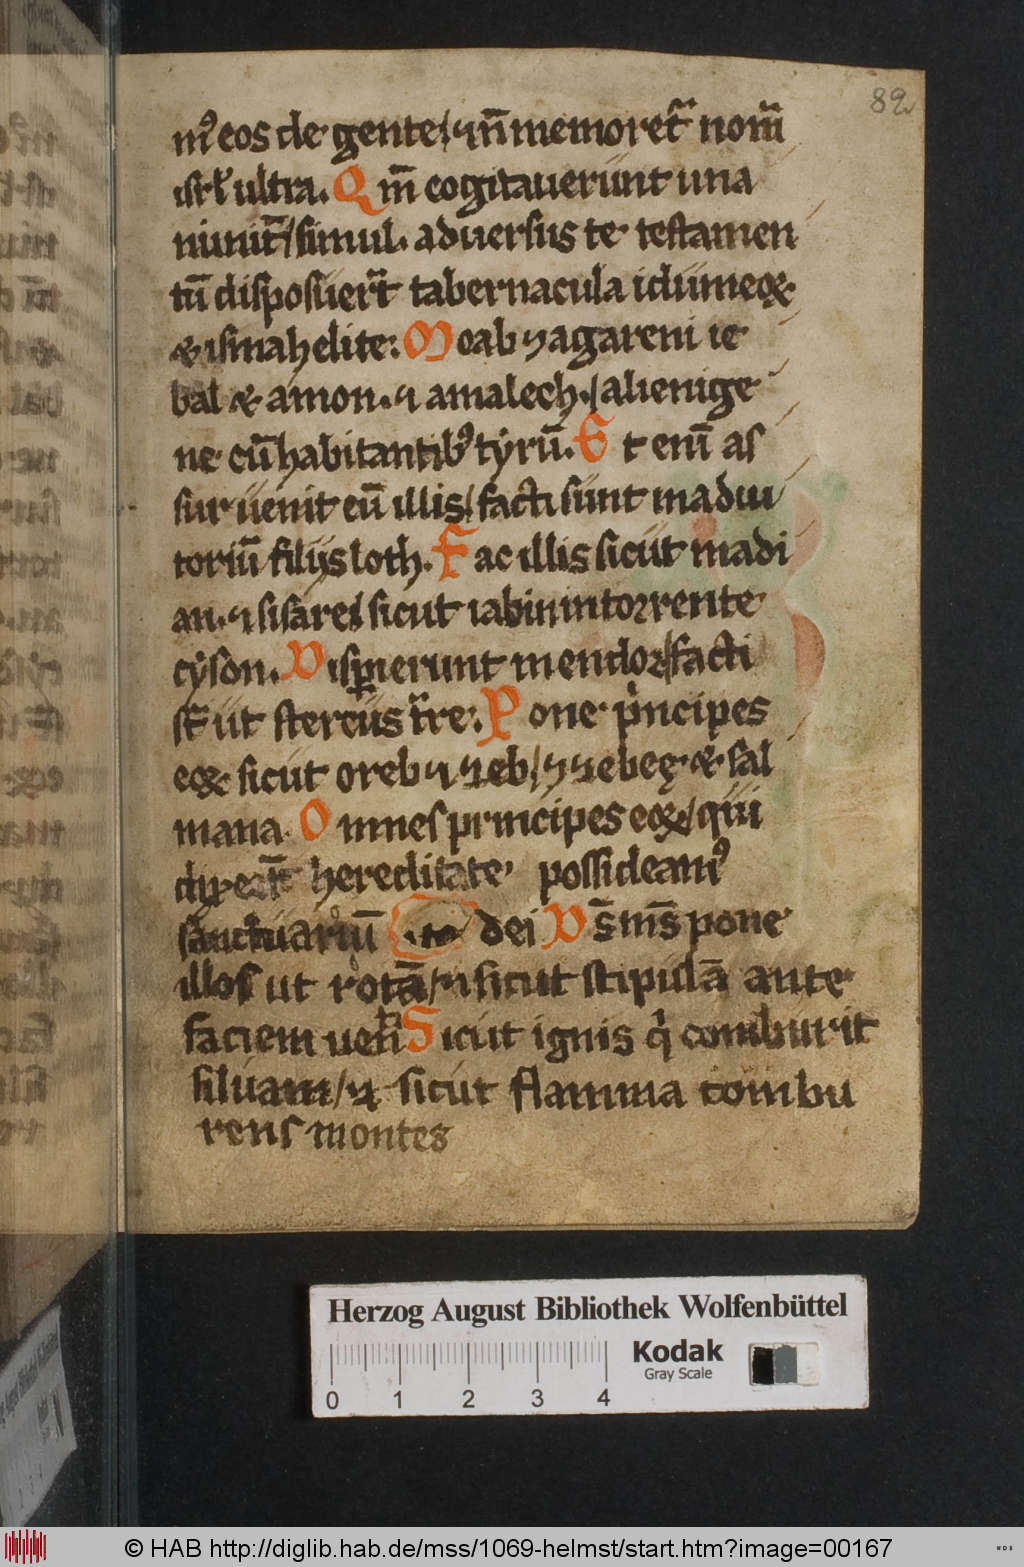 82
mꝰ eos de gente / ⁊ n̄ memoret᷑ nom̄
isrł ultra. Qm̄ cogitauerunt una
nimit᷑ / simul. aduersus te testamen
tū disposuer̄t tabernacula idumeoꝝ
& ismahelite: Moab ⁊ agareni ie
bal & amon. ⁊ amalech. / alienige
ne cū habitantibꝰ tyrū. Et enī as
sur uenit cū illis / facti sunt in adiu
toriū filijs loth. Fac illis sicut madi
an. ⁊ sisare / sicut iabin in torrente
cyson. Disꝑierunt in endor / facti
st̄ ut stercus t̄re: Pone pͥncipes
eoꝝ sicut oreb ⁊ zeb / ⁊ zebeę & sal
mana. Omnes principes eoꝝ / qui
dixer̄t hereditate possideamꝰ
sanctuariū dei Ds̄ ms̄ pone
illos ut rotā / ⁊ sicut stipulā ante
faciem uen̄ Sicut ignis qͥ comburit
siluam / ⁊ sicut flamma combu
rens montes
Herzog August Bibliothek Wolfenbüttel
Kodak
Gray Scale
0 1 2 3 4
© HAB http://diglib.hab.de/mss/1069-helmst/start.htm?image=00167